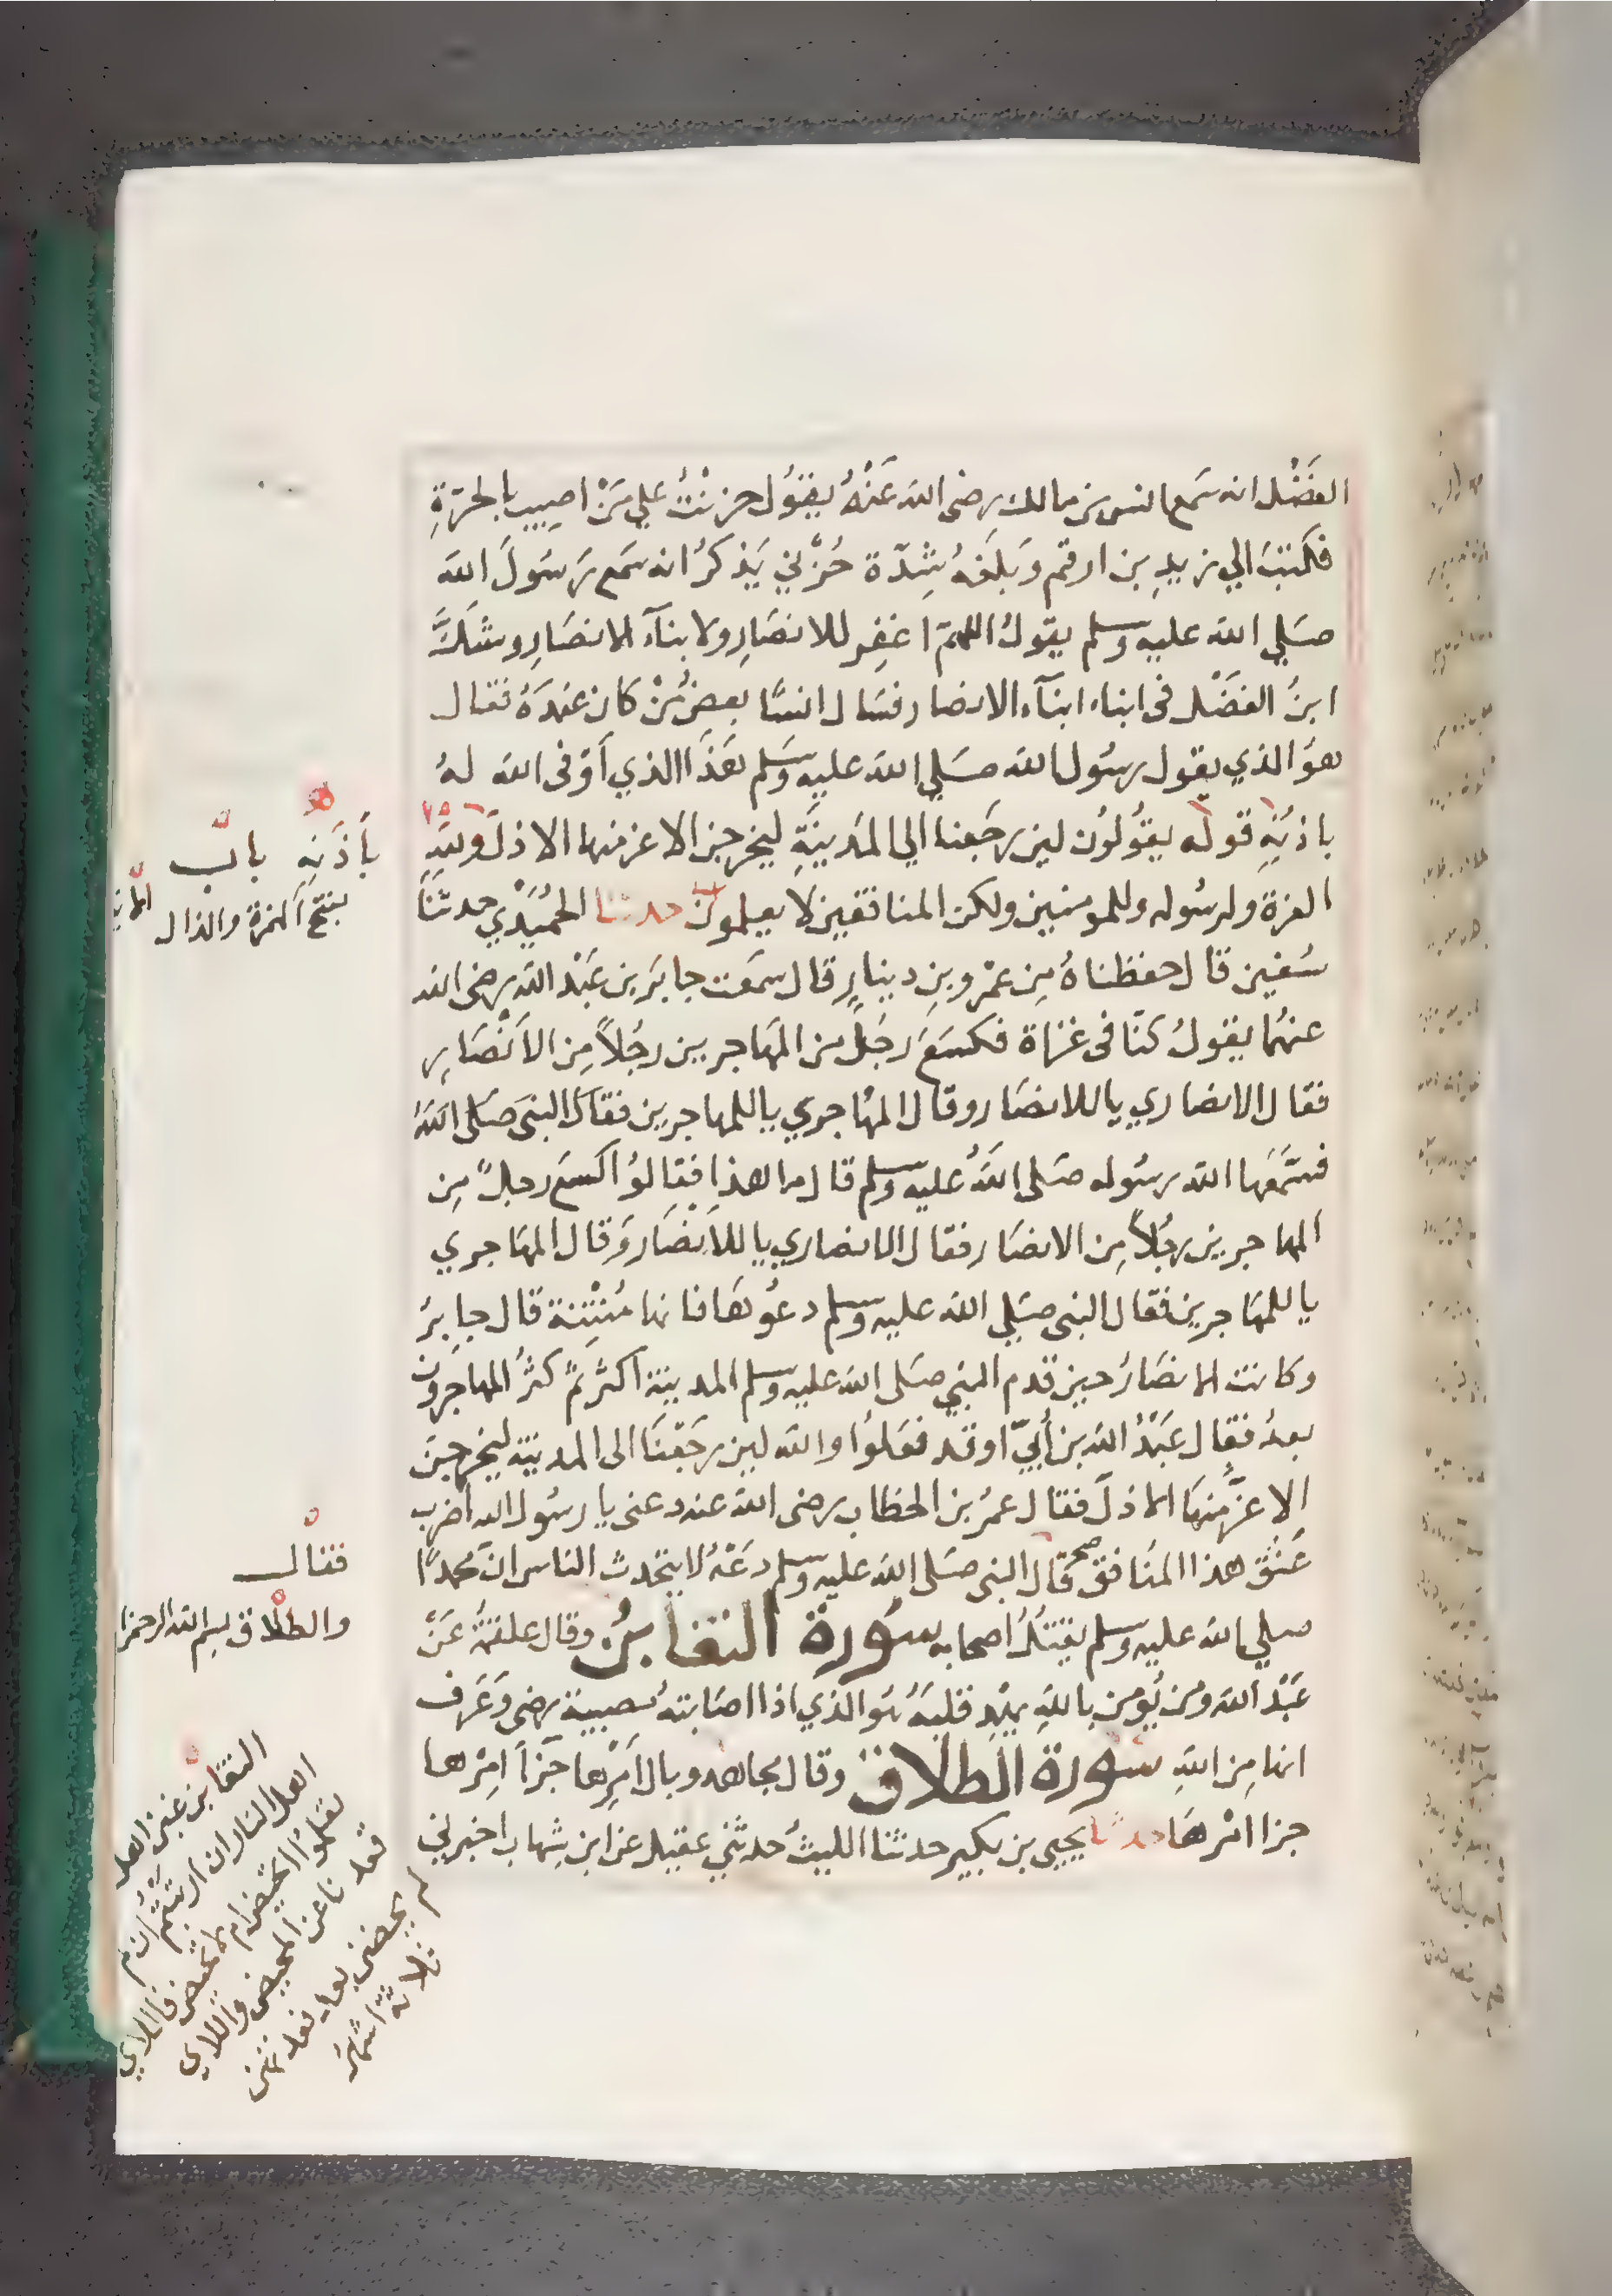 الفَضْل انه سَمع انس بن مالك رضى الله عَنْهُ يقُول حزنْتُ علي مَنْ اصِيب بالحَرّةِ
فكَتبَ الي زيدِ بن ارقم وَبلَغهُ شِدّة حُزْني يَذكرُ انه سَمع رَسُولَ الله
صَلي الله عليه وَسلم يقولُ اللهمّ اغفِر للانصَارِ ولابنآء الانصَارِ وشَكَّ
ابنُ الفَضْل فى ابناء ابنآء الانصار فسَال انسًا بعضُ مَنْ كان عندَهُ فقال
هوَ الذي يقول رسُول الله صَلي الله عليه وَسَلم هَذَا الذي أوْفى الله لهُ
باذنِهِ قوله يقُولُون لين رجَعنا الي المَدينَةِ ليخرجن الاعز منها الاذل وَللهِ
العزة ولرسُوله وللمومنين ولكن المنافقين لا يعلمون حدثنا الحُمَيْدي حدثنَا
سُفين قال حفظناهُ مِن عمْرو بنِ دينارٍ قال سمَعت جابرَ بن عَبْد الله رضى الله
عنهُما يقولُ كنّا فى غزاة فكسَعَ رجُلٌ من المهَاجرين رجُلاً مِن الاَنْصَارِ
فقال الانصاري ياللانصَار وقال المهُاجري ياللمهاجرين فقال النبىَ صَلى اللهُ
فسَمَّعَها الله رسُوله صَلى اللهُ عليه وَسلم قال ما هذا فقالوُا كسَع رجلٌ مِن
المهاجرين رجُلاً مِن الانصَار فقال الانصاري ياللاَنْصَار وَقال المهَاجري
ياللمهَاجرين فقال النبى صَلي الله عليه وَسلم دعُوهَا فانها مُنْتِنة قال جابِرُ
وكانت الانصَارُ حين قدم النبي صَلى الله عليه وسلم المدينة اكثر ثمّ كثرُ المهاجرون
بعدُ فقال عَبْدُ الله بن أُبيّ اوقد فعَلوُا والله لين رجَعْنَا الى المدينة ليخرجنَ
الاعزُّ منهَا الاذلَّ فقال عمرُ بن الخطاب رضى الله عنه دعنى يا رسُول الله اضرب
عَنُقَ هذا المنَافق صح قال النبى صَلى الله عليه وسلم دَعْهُ لا يتحَدث الناس انّ محمدًا
صلي الله عليه وسلم يقتُلُ اصحابه سُورة التغابن وقال علقمةُ عَنْ
عَبْد الله ومن يُومن باللهِ يهْدِ قلبَهُ هُوَ الذي اذا اصَابتهُ مصيبة رضى وَعَرف
انها مِن اللهِ سُورة الطلاق وقال مجاهد وبال اَمْرِها جَزآ امِرْها
جزا امْرهَا حدثنا يحيي بن بكير حدثنا الليثُ حدثني عقيل عن ابن شِهاب اخبرني
بأَذَنِه باب
بفتح الهمزة والذال
فقال
والطلاق بسم الله الرحمن
التغابن غبن اهل
اهل النار ان ارتبتم ان لم
تعلموُا اتحيض ام لا تحيض فاللاي
قعدنا عن المحيض واللاي
لم يحضن بعد فعدتهن
ثلاثة اشهر